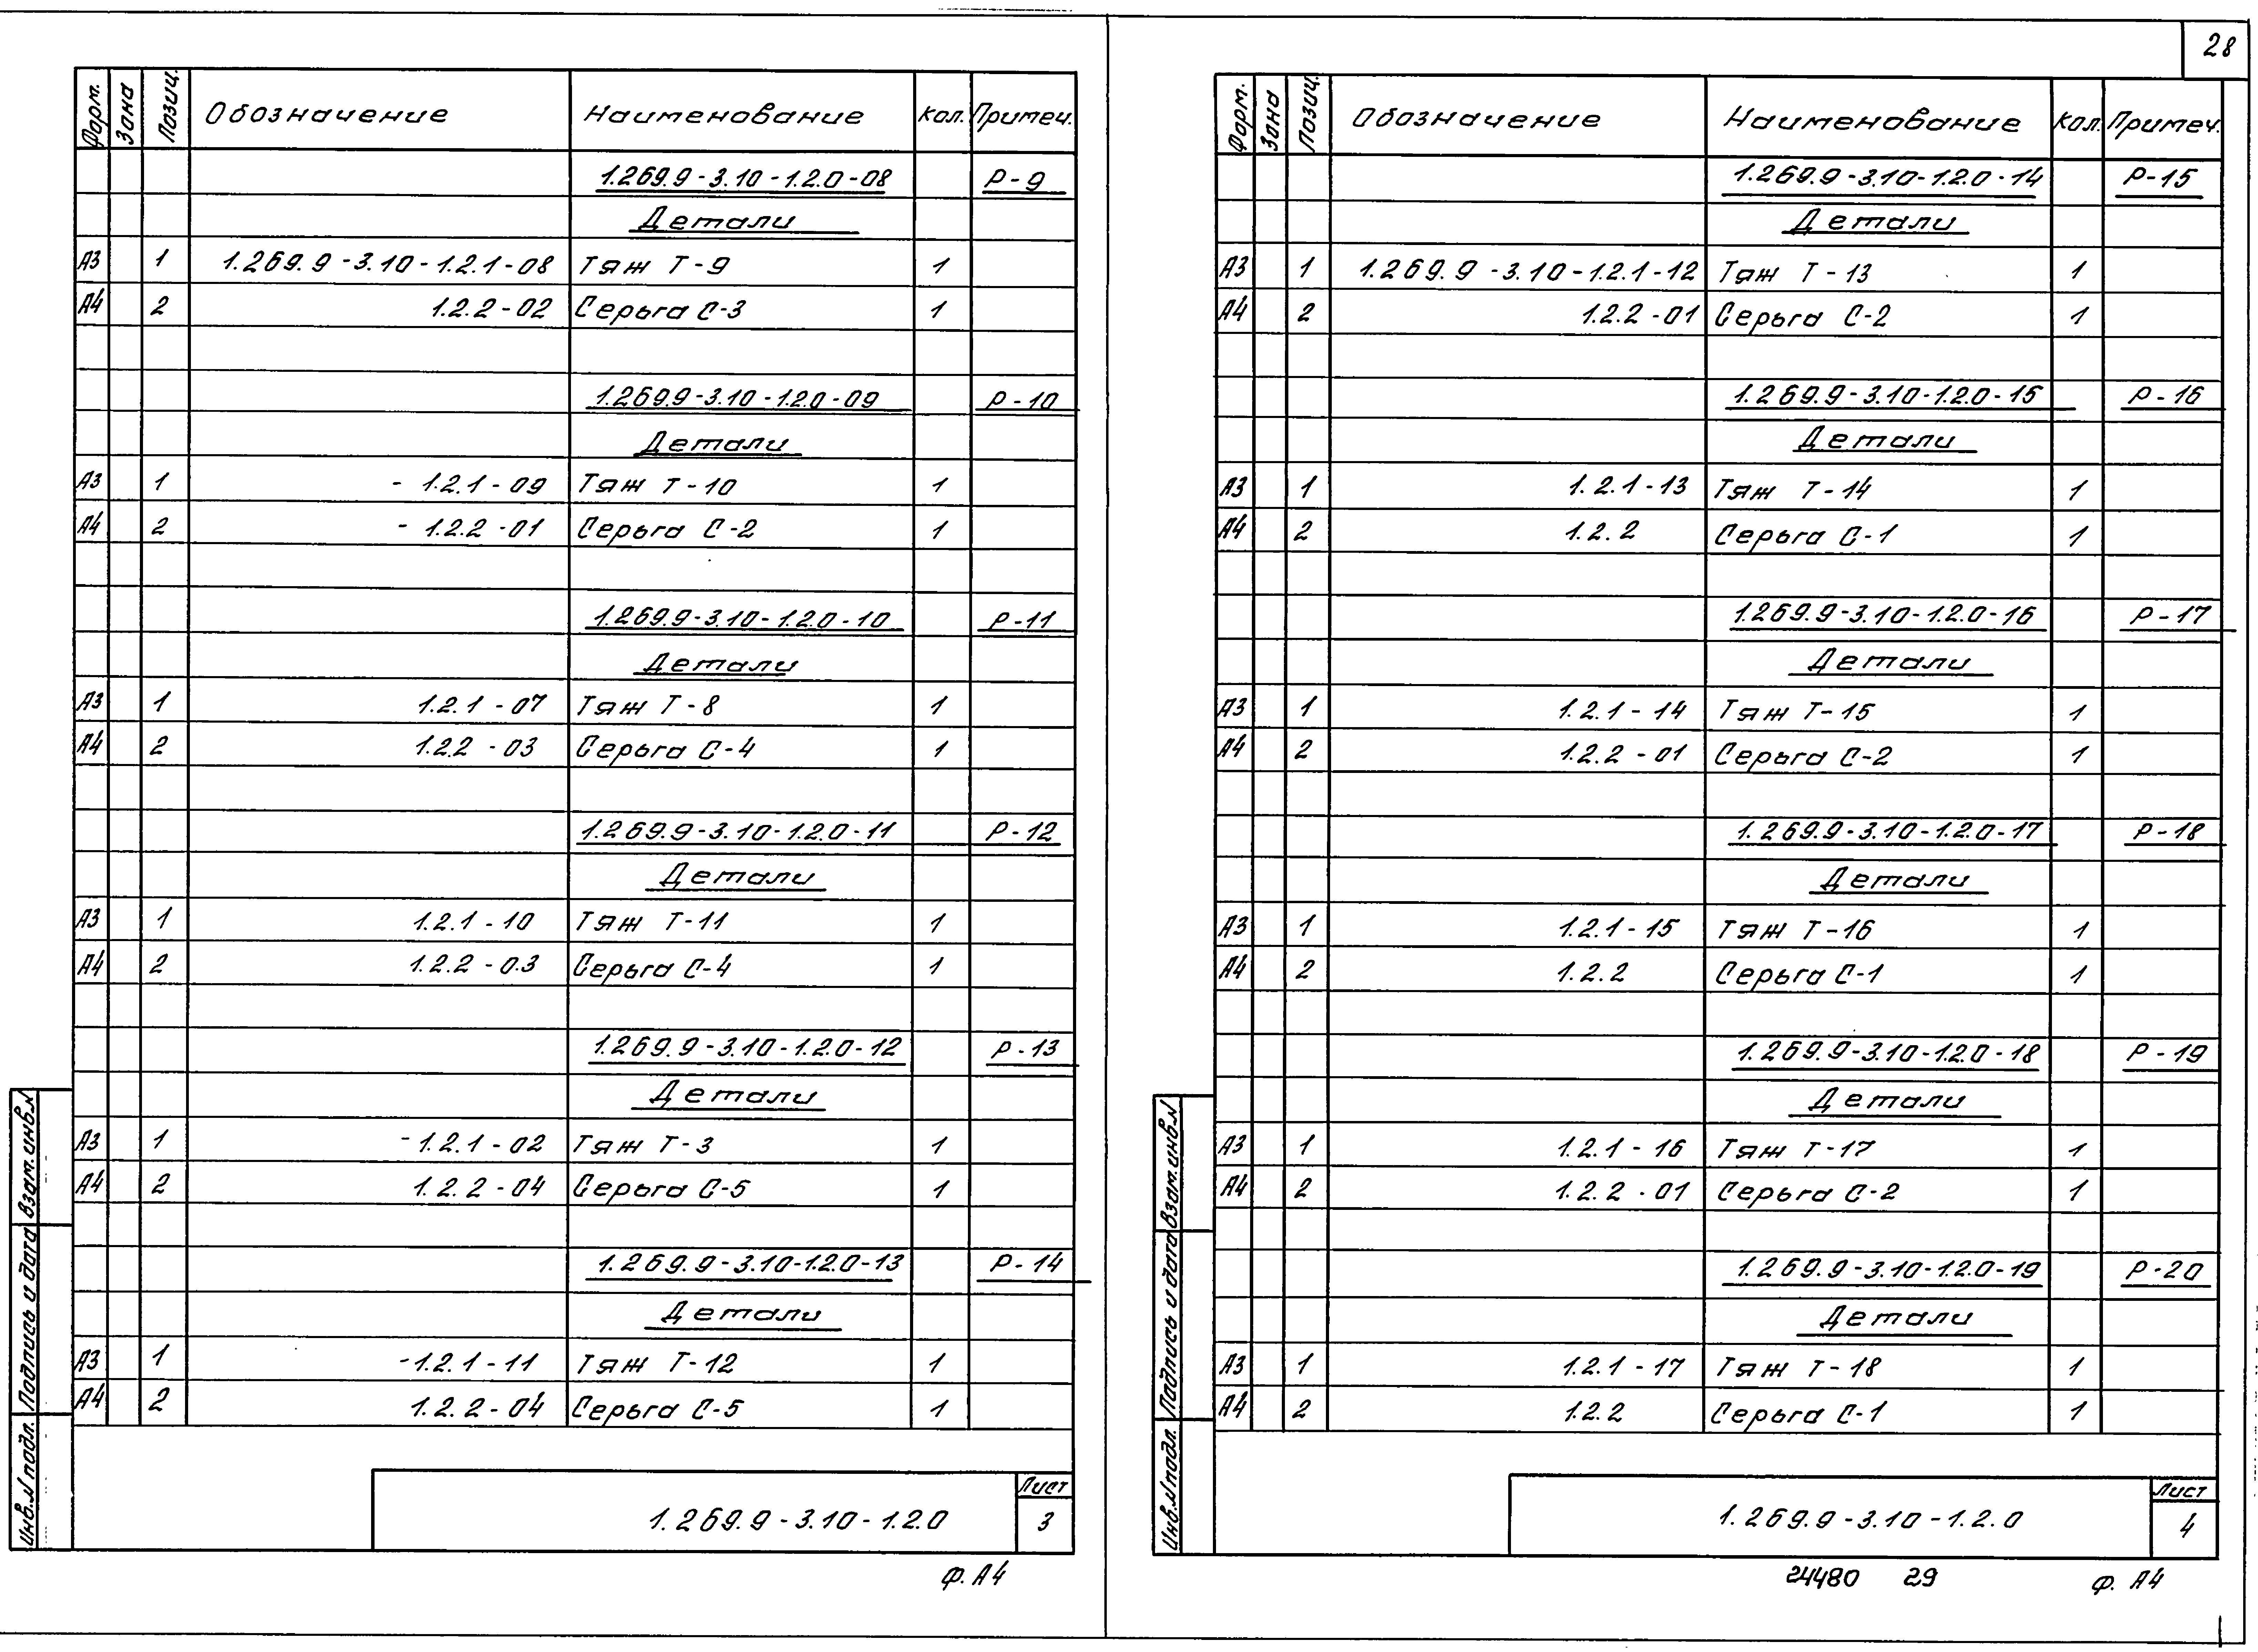 28
Форм. Зона Позиц. Обозначение Наименование Кол. Примеч.
1.269.9-3.10-1.2.0-08 Р-9
Детали
А3 1 1.269.9-3.10-1.2.1-08 Тяж Т-9 1
А4 2 1.2.2-02 Серьга С-3 1
1.269.9-3.10-1.2.0-09 Р-10
Детали
А3 1 - 1.2.1-09 Тяж Т-10 1
А4 2 - 1.2.2-01 Серьга С-2 1
1.269.9-3.10-1.2.0-10 Р-11
Детали
А3 1 1.2.1-07 Тяж Т-8 1
А4 2 1.2.2-03 Серьга С-4 1
1.269.9-3.10-1.2.0-11 Р-12
Детали
А3 1 1.2.1-10 Тяж Т-11 1
А4 2 1.2.2-0.3 Серьга С-4 1
1.269.9-3.10-1.2.0-12 Р-13
Детали
А3 1 -1.2.1-02 Тяж Т-3 1
А4 2 1.2.2-04 Серьга С-5 1
1.269.9-3.10-1.2.0-13 Р-14
Детали
А3 1 -1.2.1-11 Тяж Т-12 1
А4 2 1.2.2-04 Серьга С-5 1
Инв.N подл. Подпись и дата Взам.инв.N
1.269.9-3.10-1.2.0 Лист 3
Ф. А4
Форм. Зона Позиц. Обозначение Наименование Кол. Примеч.
1.269.9-3.10-1.2.0-14 Р-15
Детали
А3 1 1.269.9-3.10-1.2.1-12 Тяж Т-13 1
А4 2 1.2.2-01 Серьга С-2 1
1.269.9-3.10-1.2.0-15 Р-16
Детали
А3 1 1.2.1-13 Тяж Т-14 1
А4 2 1.2.2 Серьга С-1 1
1.269.9-3.10-1.2.0-16 Р-17
Детали
А3 1 1.2.1-14 Тяж Т-15 1
А4 2 1.2.2-01 Серьга С-2 1
1.269.9-3.10-1.2.0-17 Р-18
Детали
А3 1 1.2.1-15 Тяж Т-16 1
А4 2 1.2.2 Серьга С-1 1
1.269.9-3.10-1.2.0-18 Р-19
Детали
А3 1 1.2.1-16 Тяж Т-17 1
А4 2 1.2.2-01 Серьга С-2 1
1.269.9-3.10-1.2.0-19 Р-20
Детали
А3 1 1.2.1-17 Тяж Т-18 1
А4 2 1.2.2 Серьга С-1 1
Инв.N подл. Подпись и дата Взам.инв.N
1.269.9-3.10-1.2.0 Лист 4
24480 29 Ф. А4